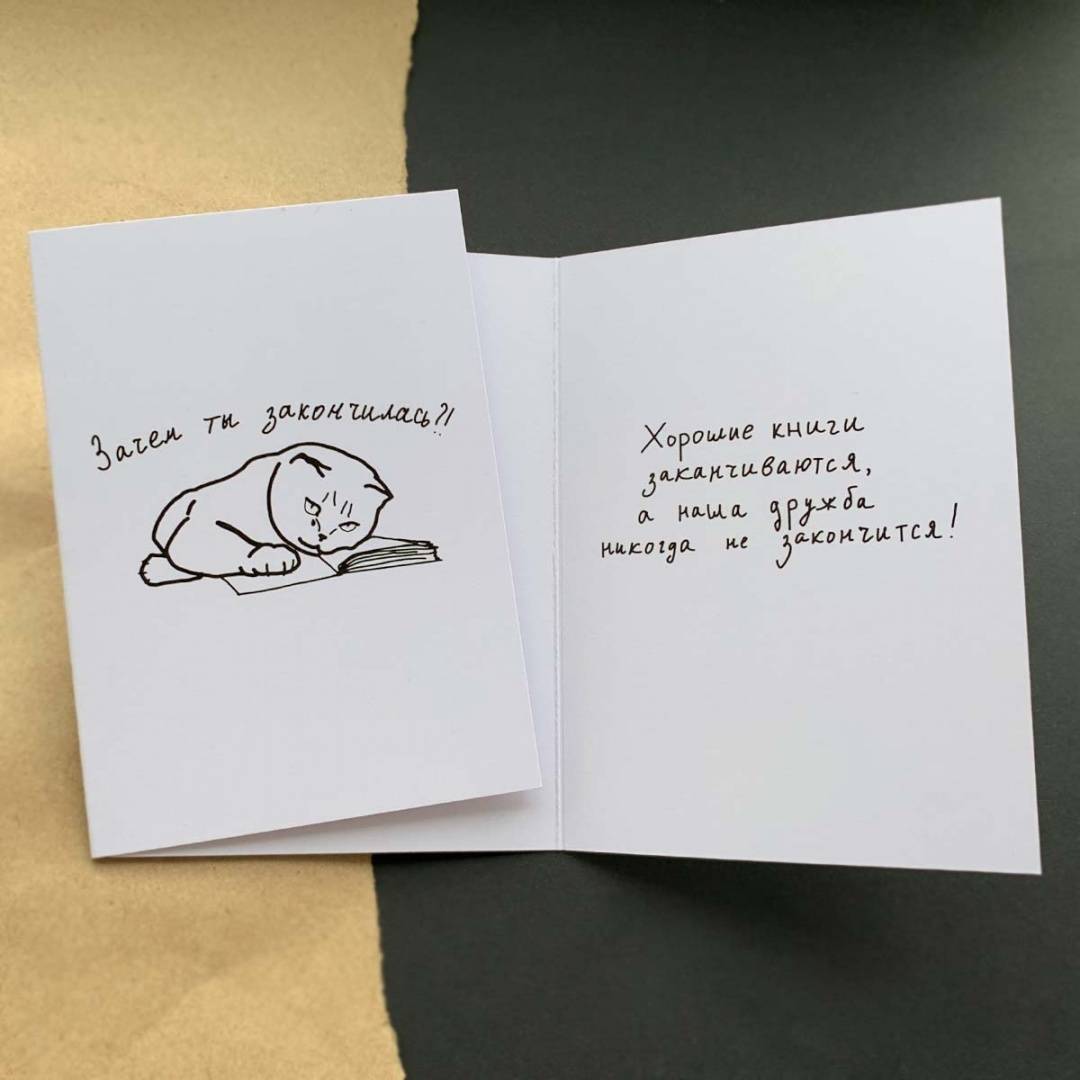 Зачем ты закончилась?!
Хорошие книги
заканчиваются,
а наша дружба
никогда не закончится!